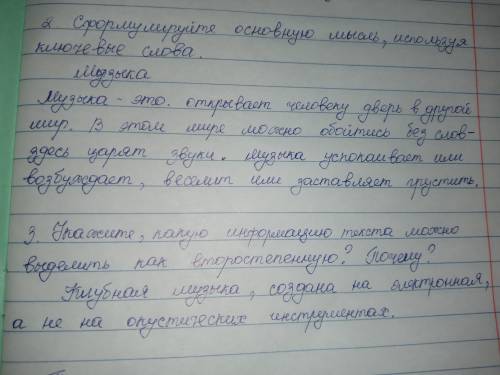 2 Сформулируйте основную мысль, используя
ключевые слова.
Музыка
Музыка - это. открывает человеку дверь в другой
мир. В этом мире можно обойтись без слов-
здесь царят звуки. Музыка успокаивает или
возбуждает, веселит или заставляет грустить.
3. Укажите, какую информацию текста можно
выделить как второстепенную? Почему?
Клубная музыка, создана на электронная,
а не на опустических инструментах.